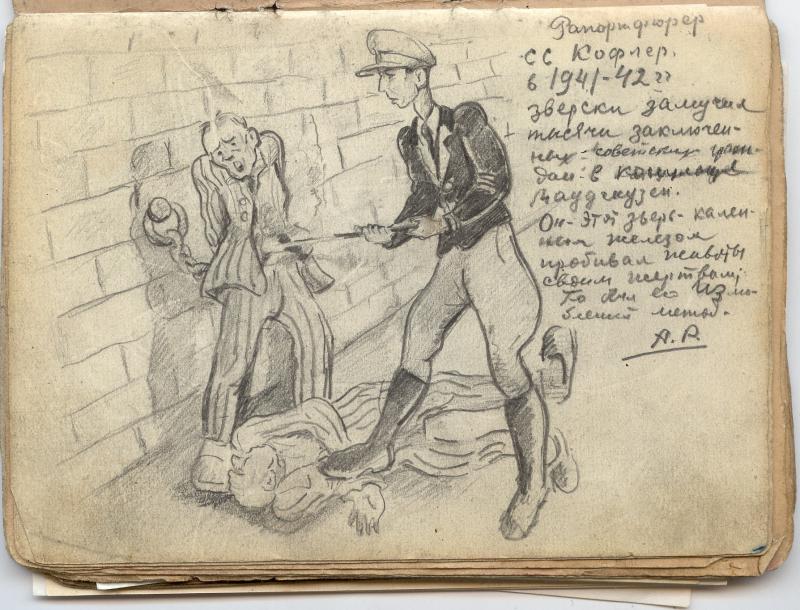 Рапортфюрер
СС Кофлер.
в 1941-42 гг
зверски замучил
тысячи заключен-
ных советских граж-
дан в концлаге
Маудгаузен.
Он- этот зверь- кален-
ным железом
пробивал животы
своим жертвам;
То был его излю-
бленный метод.
А.Р.